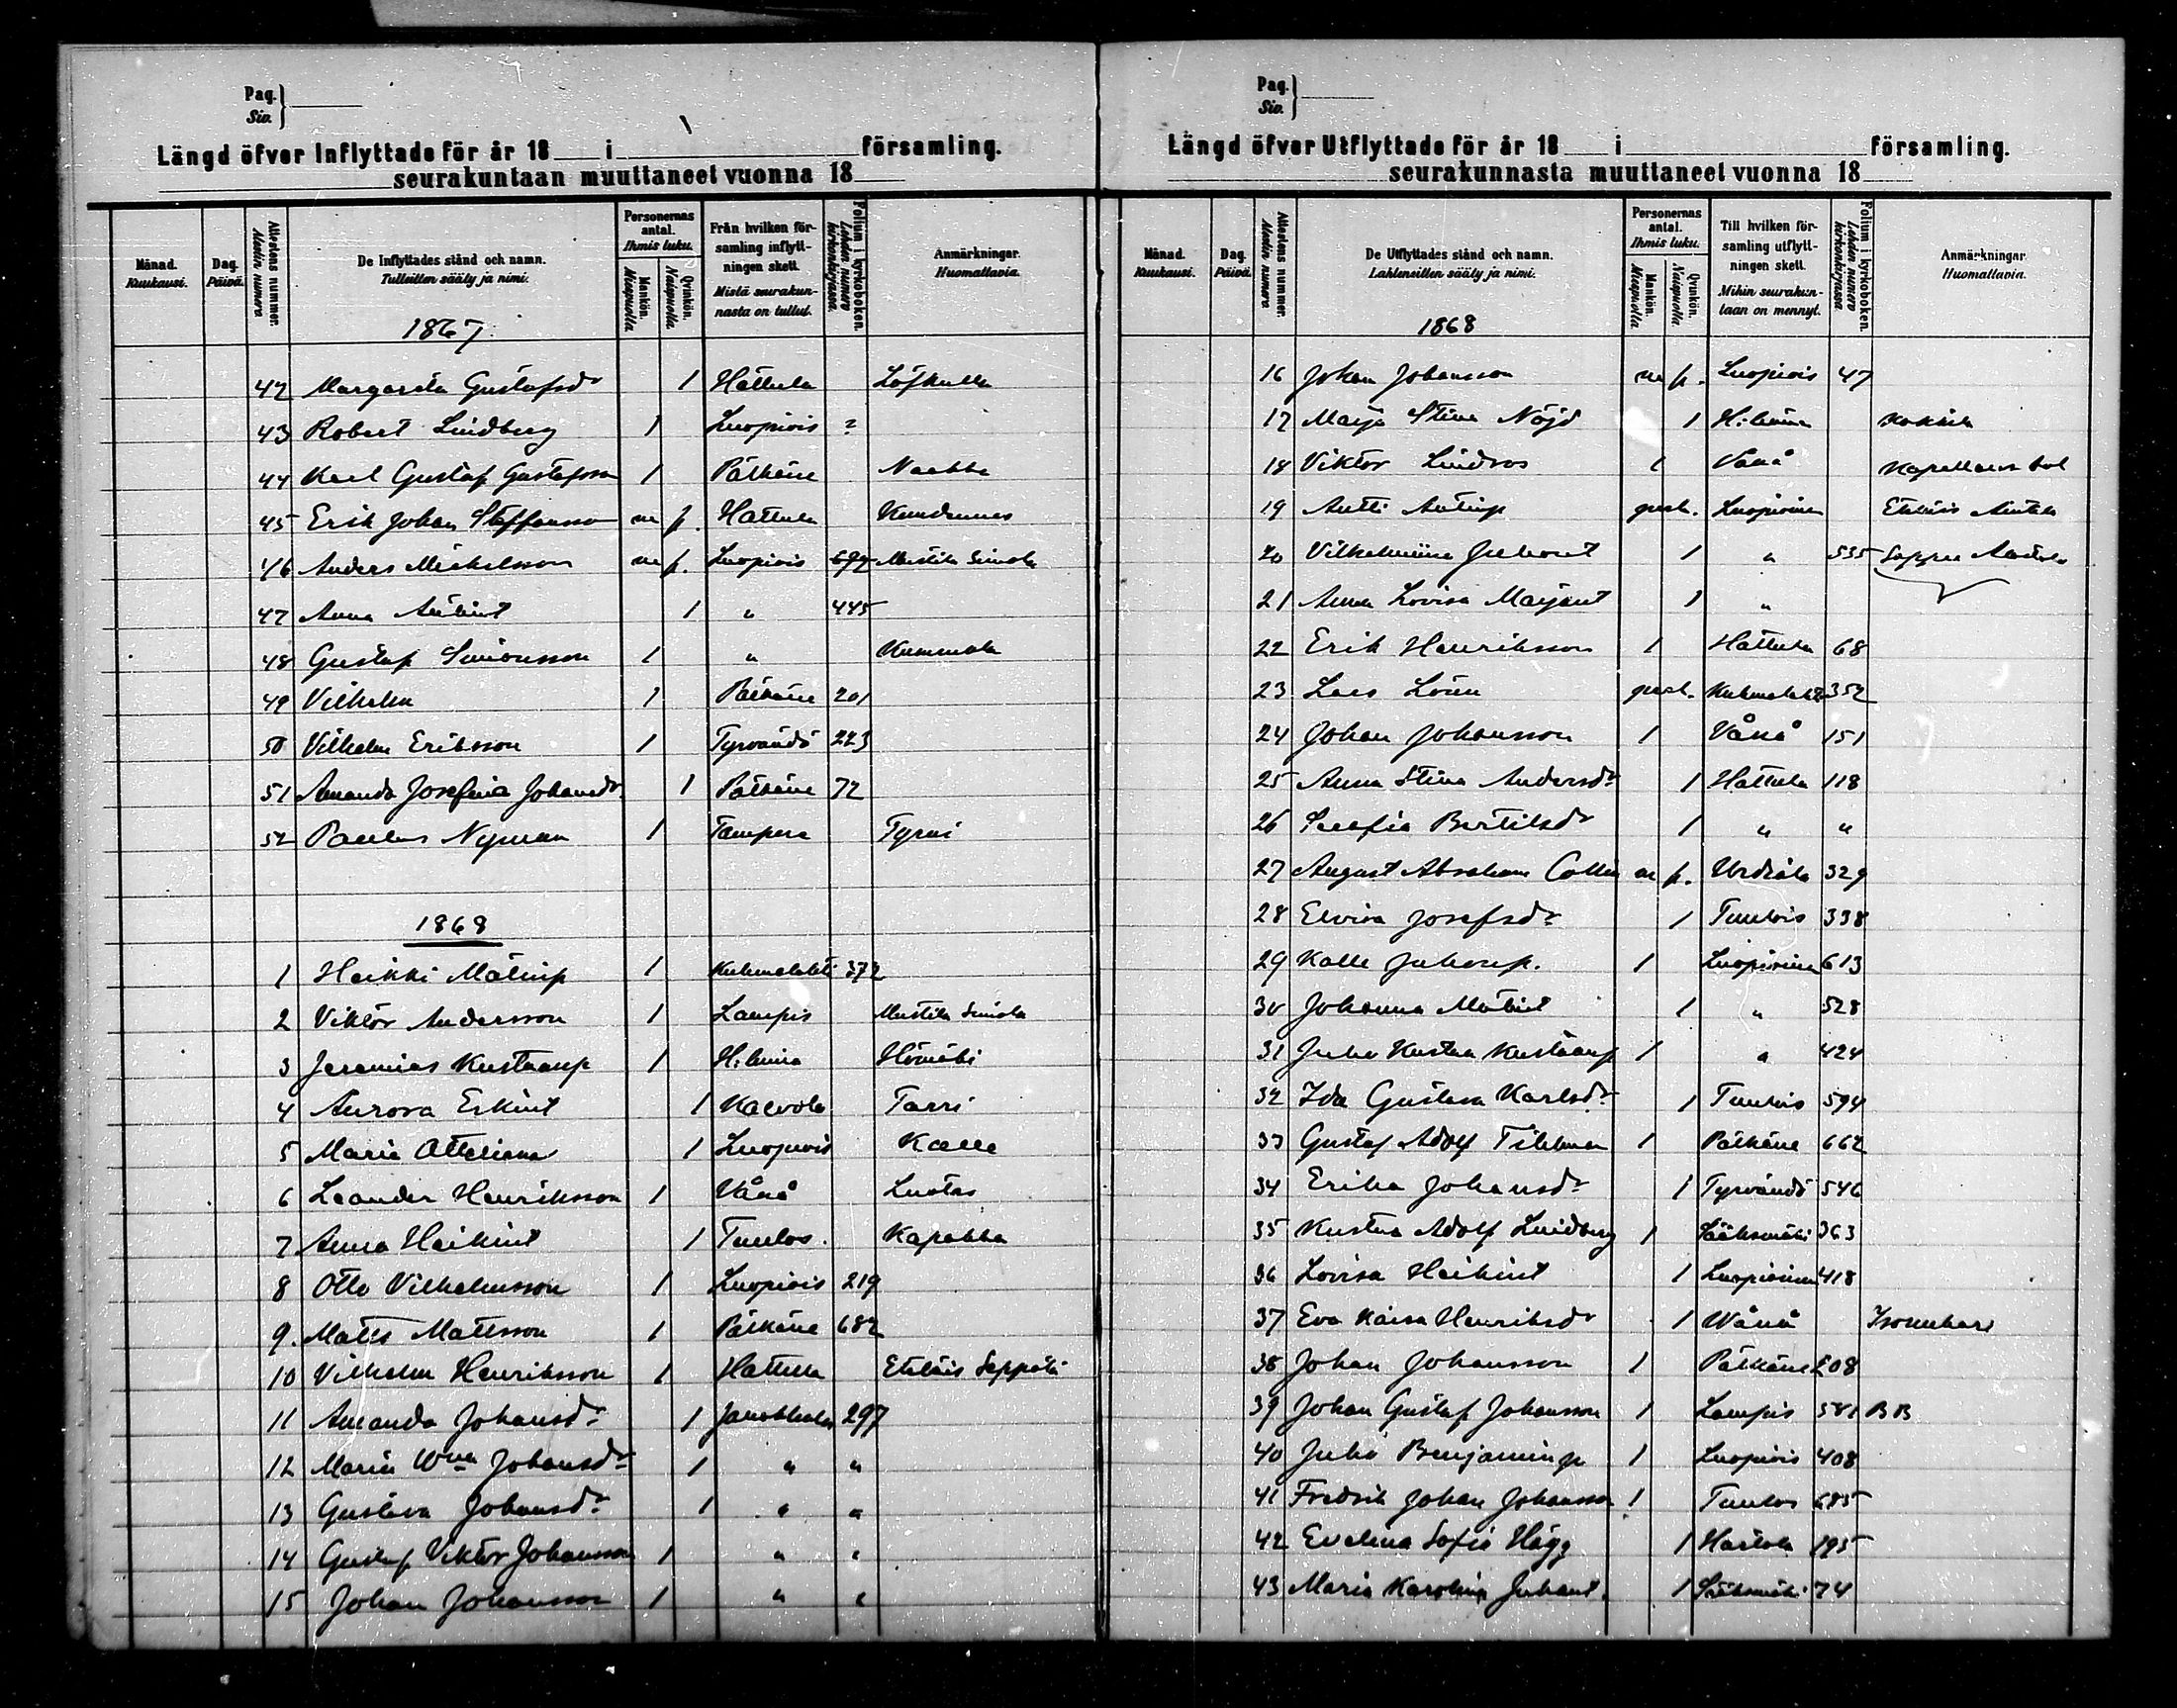 Pag.
Siv.
Längd öfver Inflyttade för år 18 i församling.
seurakuntaan muuttaneet vuonna 18
Månad. Kuukausi.
Dag. Päivä.
Attestens nummer.
De Inflyttades stånd och namn.
Tulleitten sääty ja nimi.
Personernas antal. Ihmis luku.
Mankön. Miespuolia
Qvinkön. Naispuolia
Från hvilken församling inflyttningen skett.
Mistä seurakunnasta on tullut.
Folium i kyrkoboken. Lehden numero kirkonkirjassa
Anmärkningar. Huomattavia.
1867
42 Margareta Gustafsdr 1 Hattula Löfkulla
43 Robert Lindberg 1 Luopiois ?
44 Karl Gustaf Gustafsson 1 Pälkäne
45 Erik Johan Staffansson m f. Hattula
46 Anders Michelsson m f. Luopiois Mustila Simola
47 Anna 1 " 445
48 Gustaf Simonsson 1 "
49 Vilhelm 1 Pälkäne 201
50 Vilhelm Eriksson 1 Tyrvändö 223
51 Amanda Josefina Johansdr 1 Pälkäne 72
52 Paulus Nyman 1 Tampere
1868
1 Heikki Matinp 1 Kuhmalahti 372
2 Viktor Andersson 1 Lampis Mustila Simola
3 Jeremias Kustaanp 1 H:linna
4 Aurora Erkint 1 Kalvola Tarri
5 Maria 1 Luopiois
6 Leander Henriksson 1 Vånå
7. Anna Heikint 1 Tuulos.
8 Otto Vilhelmsson 1 Luopiois 219
9. Matts Mattsson 1 Pälkäne 682
10 Vilhelm Henriksson 1 Hattula Eteläis Seppälä
11 Amanda Johansdr 1 Janakkala 297
12 Maria Wma Johansdr 1 " "
13 Gustava Johansdr 1 " "
14 Gustaf Viktor Johansson 1 " "
15 Johan Johansson 1 " "
Pag.
Siv.
Längd öfver Utflyttade för år 18 i församling.
seurakunnasta muuttaneet vuonna 18
Månad. Kuukausi.
Dag. Päivä.
Attestens nummer.
De Utflyttades stånd och namn.
Lahteneitten sääty ja nimi.
Personernas antal. Ihmis luku.
Mankön. Miespuolia
Qvinkön. Naispuolia
Till hvilken församling utflyttningen skett.
Mihin seurakuntaan on mennyt.
Folium i kyrkoboken. Lehden numero kirkonkirjassa
Anmärkningar Huomattavia.
1868
16 Johan Johansson m f. Luopiois 47
17 Maija Stina Nöjd 1 H:linna
18 Viktor Lindroos 1 Vånå
19 Antti Antinp Luopioinen Eteläis
20 Vilhelmiina Juhont 1 " 535
21 Anna Lovisa 1 "
22 Erik Henriksson 1 Hattula 68
23 Kuhmalahti 352
24 Johan Johansson 1 Vånå 151
25 Anna Stina Andersdr 1 Hattula 118
26 Serafia Bertilsdr 1 " "
27 August Abraham Collin m f. Urdiala 329
28 Elvira Josefsdr 1 Tuulois 338
29 Kalle Juhonp. 1 Luopioinen 613
30 Johanna Matint 1 " 528
31 Juho Kustaa Kustaanp 1 " 424
32 Ida Gustava Karlsdr 1 Tuulois 594
33 Gustaf Adolf 1 Pälkäne 662
34 Erika Johansdr 1 Tyrvändö 546
35 Kustaa Adolf Lindberg 1 Sääksmäki 363
36 Lovisa Heikint 1 Luopioinen 418
37 Eva Kaisa Henriksdr 1 Wånå
38 Johan Johansson 1 Pälkäne
39 Johan Gustaf Johansson 1 Lampis 581 BB
40 Juho Benjaminp 1 Luopiois 408
41 Fredrik Johan Johansson 1 Tuulos 685
42 Evelina Sofia Hägg 1 195
43 Maria Karolina Juhant. 1 Sääksmäki 74